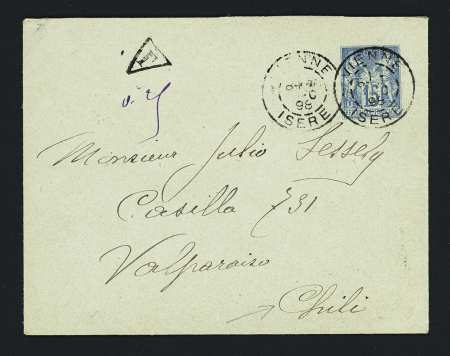 T
VIENNE
98
ISERE
VIENNE
15
98
ISERE
Monsieur Julio
Casilla 731
Valparaiso
Chili